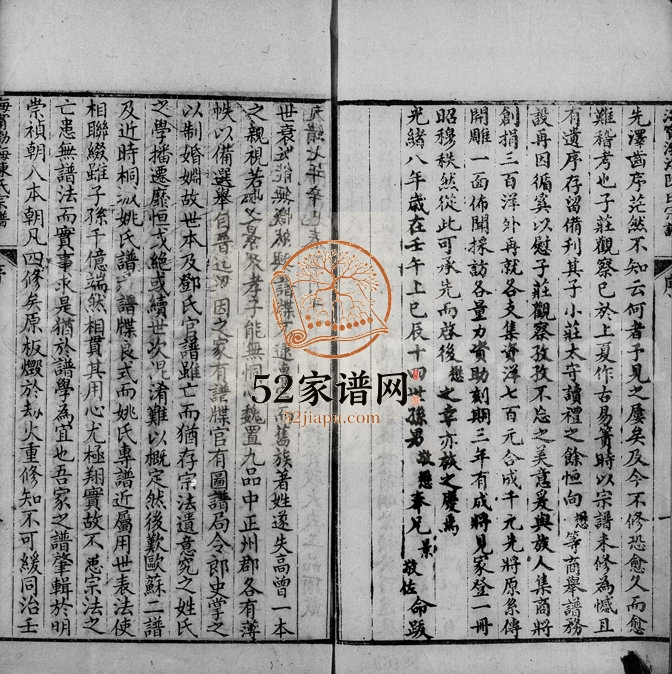 先澤齒序茫然不知云何者予見之屢矣及今不修恐愈久而愈
難稽考也子莊觀察已於上夏作古易簀時以宗譜未修為憾且
有遺序存留備刊其子小莊太守讀禮之餘恒向懋等商舉譜務
設再因循奚以慰子莊觀察孜孜不忘之美意爰與族人集商將
創捐三百洋外再就各支集資洋七百元合成千元先將原系傳
開雕一面佈聞採訪各量力資助刻期三年有成將見家登一冊
昭穆秩然從此可承先而啓後懋之幸亦族之慶焉
光緒八年歲在壬午上巳辰十四世孫男敬懋奉兄景敬佐命跋
世衰
而舊族著姓遂失高曾一本
之親視若
孝子能無恫心魏置九品中正州郡各有薄
帙以備選舉自晉
因之家有譜牒官有圖譜局令郎史掌之
以制婚姻故世本及鄧氏官譜雖亡而猶存宗法遺意究之姓氏
之學播遷靡恒或絶或續世次混淆難以概定然後歎歐蘇二譜
及近時桐城姚氏譜
譜牒良式而姚氏專譜近屬用世表法使
相聯綴雖子孫千億端然相貫其用心尤極翔實故不患宗法之
亡患無譜法而實事求是猶於譜學為宜也吾家之譜肇輯於明
崇禎朝入本朝凡四修矣原板燬於劫火重修知不可緩同治壬
海甯渤海陳氏宗譜
序
52家谱网
52jiapu.com